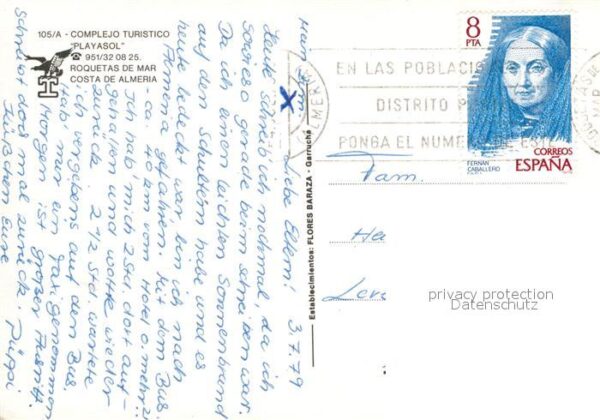 105/A - COMPLEJO TURISTICO
"PLAYASOL"
☎ 951/32 08 25.
ROQUETAS DE MAR
COSTA DE ALMERIA
3.7.79
Liebe Eltern!
Heute schreib ich nochmal, da ich
sowieso gerade beim schreiben war.
Da ich einen leichten Sonnenbrand
auf den Schultern habe und es
heute bedeckt war bin ich nach
Almeria gefahren. Mit dem Bus.
ca. 20 km vom Hotel o. mehr?!
Ich hab mich 2 Std. dort auf-
gehalten und wollte wieder
zurück. 2 1/2 Std. wartete
ich vergebens auf den Bus.
hab' mir ein Taxi genommen
ist
Schreibt doch mal zurück.
Tüßchen Eure
Püppi
Establecimientos: FLORES BARAZA - Garrucha
8
PTA
EN LAS POBLACIO
DISTRITO P
PONGA EL NUMERO DE ES
CORREOS
ESPAÑA
FERNAN
CABALLERO
Fam.
privacy protection
Datenschutz